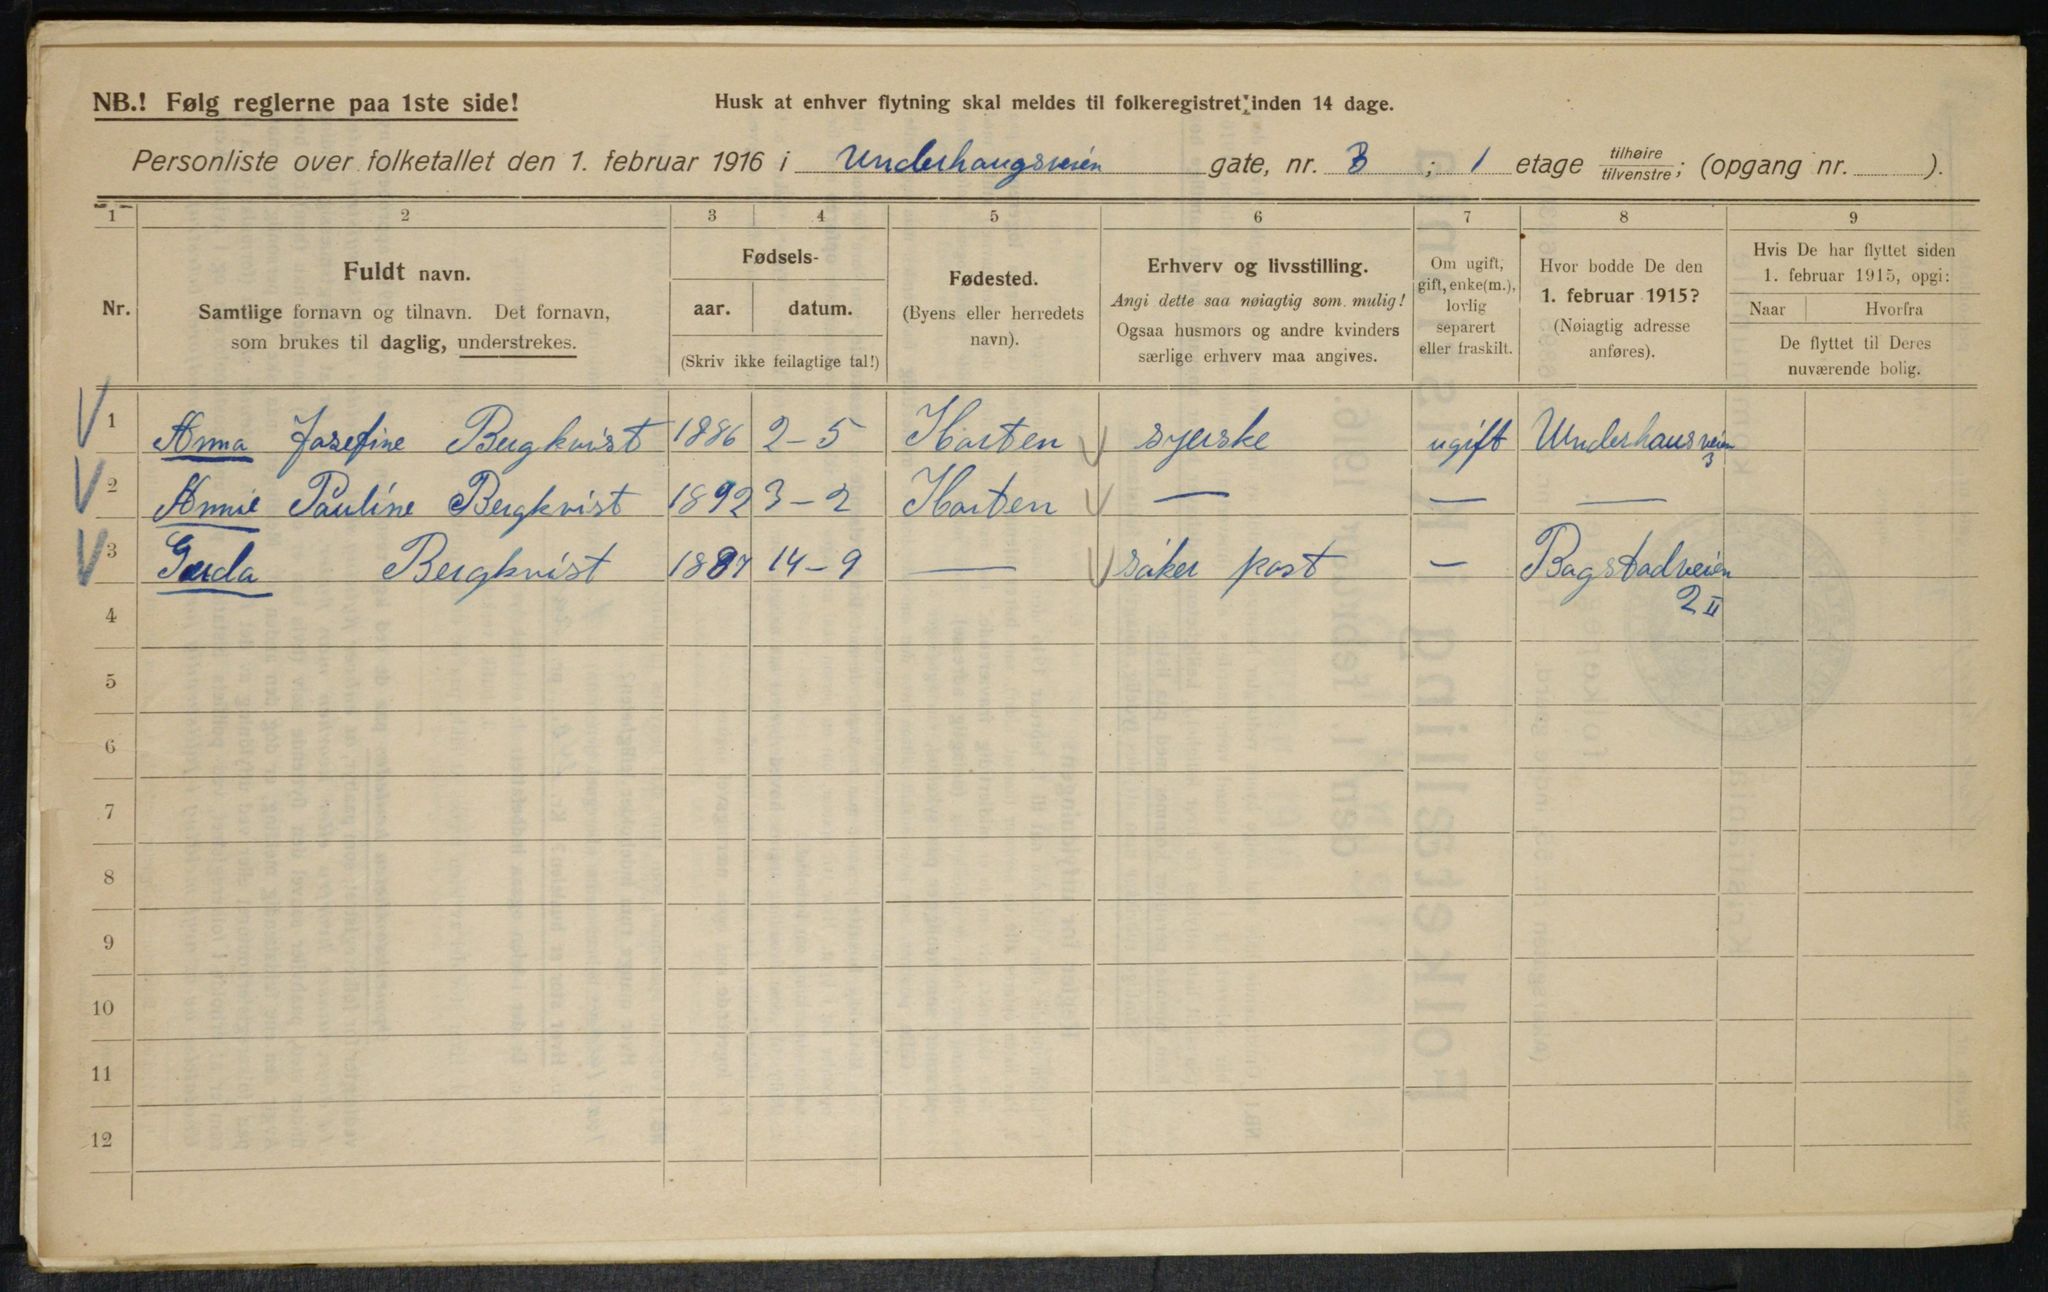 NB.! Følg reglerne paa 1ste side!
Husk at enhver flytning skal meldes til folkeregistret inden 14 dage.
Personliste over folketallet den 1. februar 1916 i Underhaugsveien gate, nr. 3 ; 1 etage tilhøire tilvenstre; (opgang nr. ).
1 2 3 4 5 6 7 8 9
Nr.
Fuldt navn.
Samtlige fornavn og tilnavn. Det fornavn,
som brukes til daglig, understrekes.
Fødsels-
aar. datum.
(Skriv ikke feilagtige tal!)
Fødested.
(Byens eller herredets
navn).
Erhverv og livsstilling.
Angi dette saa nøiagtig som mulig!
Ogsaa husmors og andre kvinders
særlige erhverv maa angives.
Om ugift,
gift, enke(m.),
lovlig
separert
eller fraskilt.
Hvor bodde De den
1. februar 1915?
(Nøiagtig adresse
anføres).
Hvis De har flyttet siden
1. februar 1915, opgi:
Naar Hvorfra
De flyttet til Deres
nuværende bolig.
1 Anna Josefine Bergkvist 1886 2-5 Horten syerske ugift Underhausveien 3
2 Annie Pauline Bergkvist 1892 3-2 Horten — — —
3 Gerda Bergkvist 1887 14-9 — søker post — Bogstadveien
2 II
4
5
6
7
8
9
10
11
12